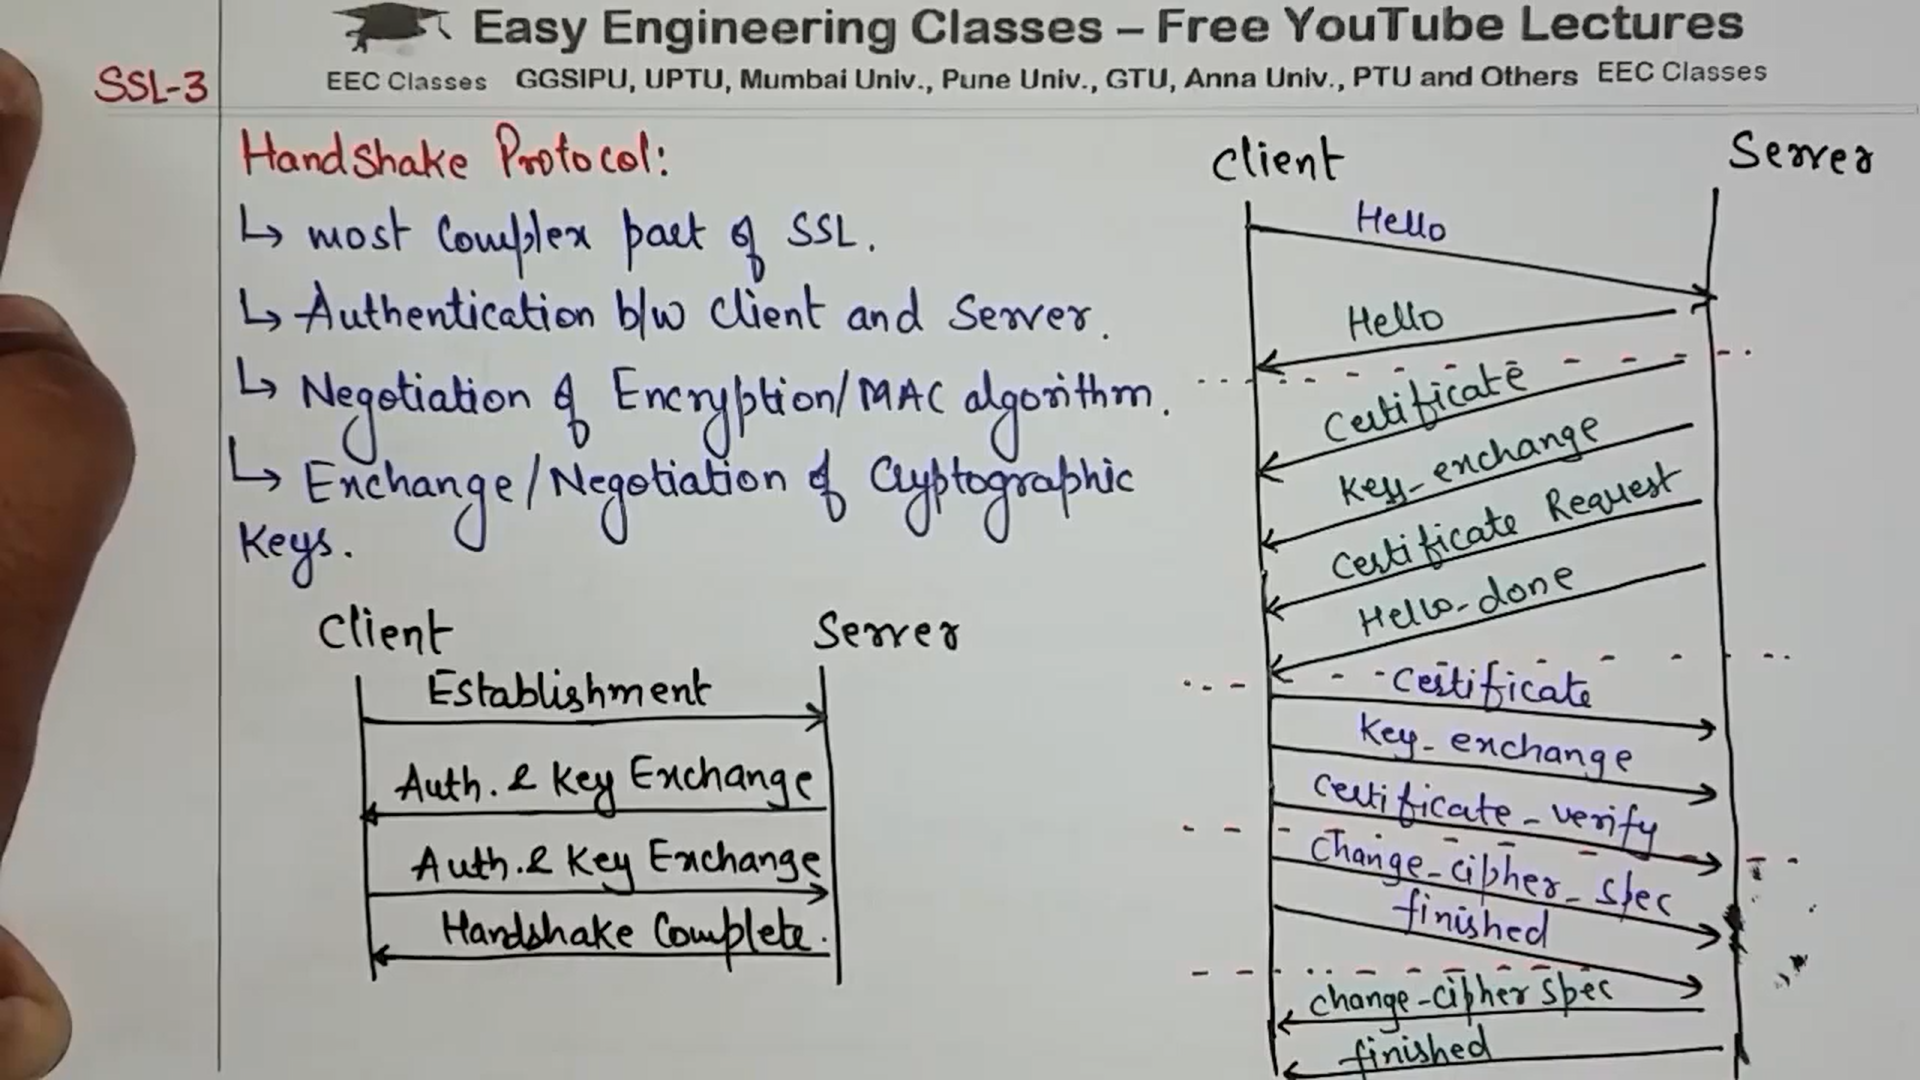 Easy Engineering Classes – Free YouTube Lectures
EEC Classes GGSIPU, UPTU, Mumbai Univ., Pune Univ., GTU, Anna Univ., PTU and Others EEC Classes
SSL-3
Handshake Protocol:
↳ most Complex part of SSL.
↳ Authentication b/w Client and Server.
↳ Negotiation of Encryption/MAC algorithm.
↳ Exchange/Negotiation of Cryptographic
Keys.
Client Server
Establishment
Auth. & Key Exchange
Auth. & Key Exchange
Handshake Complete.
Client Server
Hello
Hello
Certificate
Key_exchange
Certificate Request
Hello_done
Certificate
Key_exchange
Certificate_verify
Change_cipher_spec
finished
change_cipher spec
finished